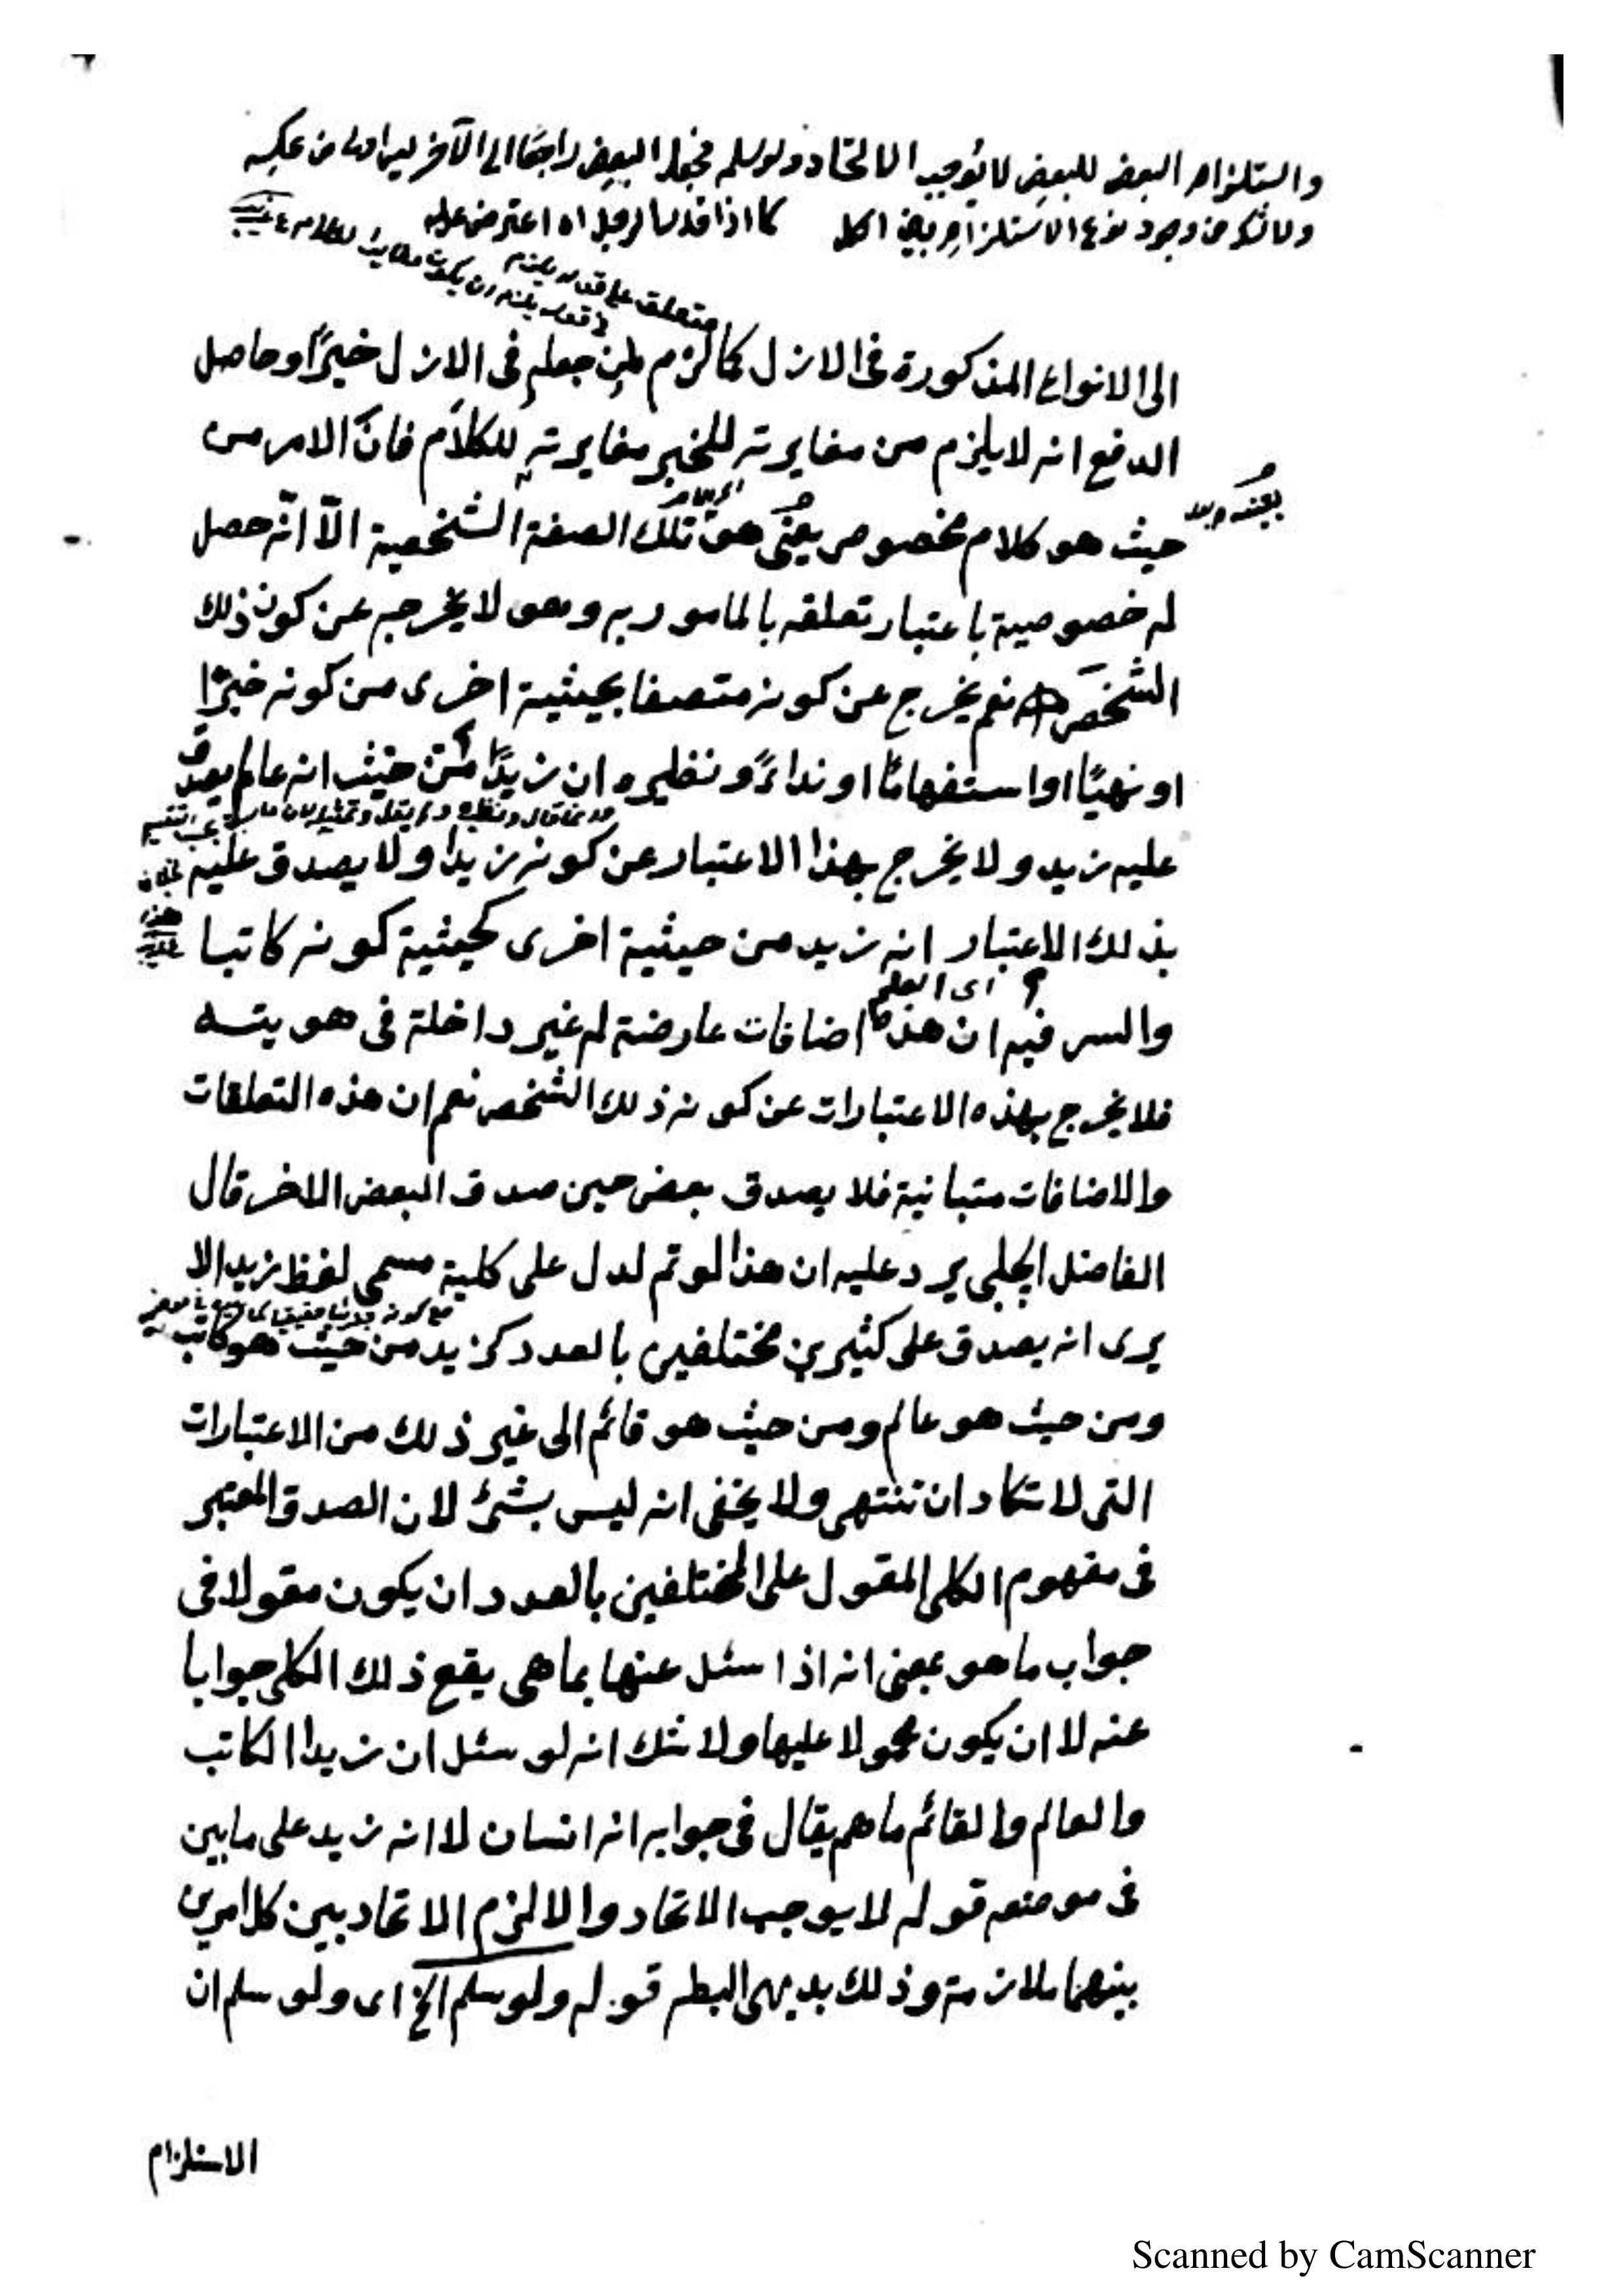 واستلزام البعض للبعض لا يوجب الاتحاد ولو سلم فجعل البعض راجعا الى الآخر ليس اولى من عكسه
ولا شك في وجود نوع الاستلزام بين الكل كما اذا قدسا لرجل اه اعترض عليه
متعلق على قوله يلزم
الى الانواع المذكورة فى الازل كما لزم لمن جعله فى الازل خبرًا وحاصل
الدفع انه لا يلزم من مغايرته للخبر مغايرته للكلام فانّ الامر من
حيث هو كلام مخصوص يعنى هو تلك الصفة الشخصية الاّ انّه حصل
له خصوصية باعتبار تعلقه بالمامور به وهو لا يخرجه عن كونه ذلك
الشخص نعم يخرج عن كونه متصفا بحيثية اخرى من كونه خبرًا
او نهيًا او استفهامًا او نداءً ونظيره ان زيدًا من حيث انه عالم يصدق
عليه زيد ولا يخرج بهذا الاعتبار عن كونه زيدا ولا يصدق عليه
بذلك الاعتبار انه زيد من حيثية اخرى كحيثية كونه كاتبا
اى العلم
والسر فيه ان هذه اضافات عارضة له غير داخلة فى هويته
فلا يخرج بهذه الاعتبارات عن كونه ذلك الشخص نعم ان هذه التعلقات
والاضافات متباينة فلا يصدق بعض حين صدق البعض الاخر قال
الفاضل الجلبى يرد عليه ان هذا لو تم لدل على كلية مسمى لفظ زيد الا
يرى انه يصدق على كثيرين مختلفين بالعدد كزيد من حيث هو كاتب
ومن حيث هو عالم ومن حيث هو قائم الى غير ذلك من الاعتبارات
التى لا تكاد ان تنتهى ولا يخفى انه ليس بشئ لان الصدق المعتبر
فى مفهوم الكلى المقول على المختلفين بالعدد ان يكون مقولا فى
جواب ما هو بمعنى انه اذا سئل عنها بما هى يقع ذلك الكلى جوابا
عنه لا ان يكون محمولا عليها ولا شك انه لو سئل ان زيدا الكاتب
والعالم والقائم ما هم يقال فى جوابه انه انسان لا انه زيد على ما بين
فى موضعه قوله لا يوجب الاتحاد والا لزم الاتحاد بين كل امرين
بينهما ملازمة وذلك بديهى البطلـ قوله ولو سلم الخ اى ولو سلم ان
الاستلزام
Scanned by CamScanner